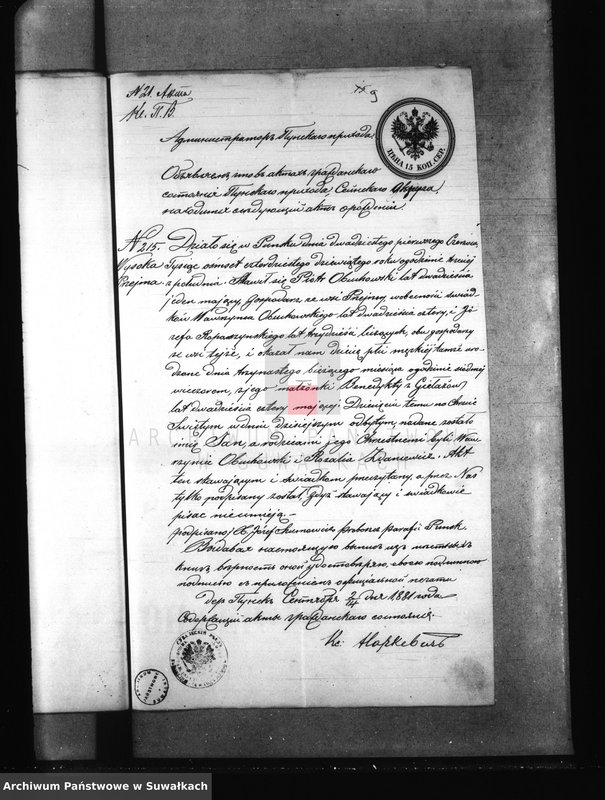 N 21. Актъ
Кс. П. В.
Администраторъ Пунскаго прихода
ЦѢНА 15 КОП. СЕР.
Объявляетъ что въ актахъ гражданскаго
состоянія Пунскаго прихода Сейнскаго Округа,
находится слѣдующій актъ о рожденіи.
N 215. Działo się w Puńsku dnia dwudziestego pierwszego Czerwca
Wysoka Tysiąc ośmset czterdziestego dziewiątego roku o godzinie trzeciej
Przejma z południa Stawił się Piotr Obuchowski lat dwadzieścia
jeden mający, Gospodarz ze wsi Przejmy, w obecności świad
ków Wawrzyńca Obuchowskiego lat dwadzieścia cztery, i Jó
zefa Kopaszyńskiego lat trzydzieści liczących, obu gospodarzy
ze wsi tejże, i okazał nam dziecię płci męzkiej tamże uro
dzone dnia trzynastego bieżącego miesiąca o godzinie siódmej
wieczorem, z jego małżonki Benedykty z Gietarów
lat dwadzieścia cztery mającej Dziecięciu temu na Chrzcie
Świętym w dniu dzisiejszym odbytym nadane zostało
imię Jan, a rodzicami jego Chrzestnemi byli Waw
rzyniec Obuchowski i Rozalia Zdaniewicz. Akt
ten stawającym i świadkom przeczytany, a przez Nas
tylko podpisany został gdyż stawający i świadkowie
pisać nie umieją. —
podpisano / X. Józef proboszcz parafii Puńsk.
Выдавая настоящую выпись изъ
книгъ вѣрность оной удостовѣряю, своею подлинною
подписью съ приложеніемъ оффиціальной печати
дер. Пунскъ Сентября 2/14 дня 1881 года
Содержащій акты гражданскаго состоянія.
Кс.
ARCHIWUM PAŃSTWOWE
W SUWAŁKACH
Archiwum Państwowe w Suwałkach